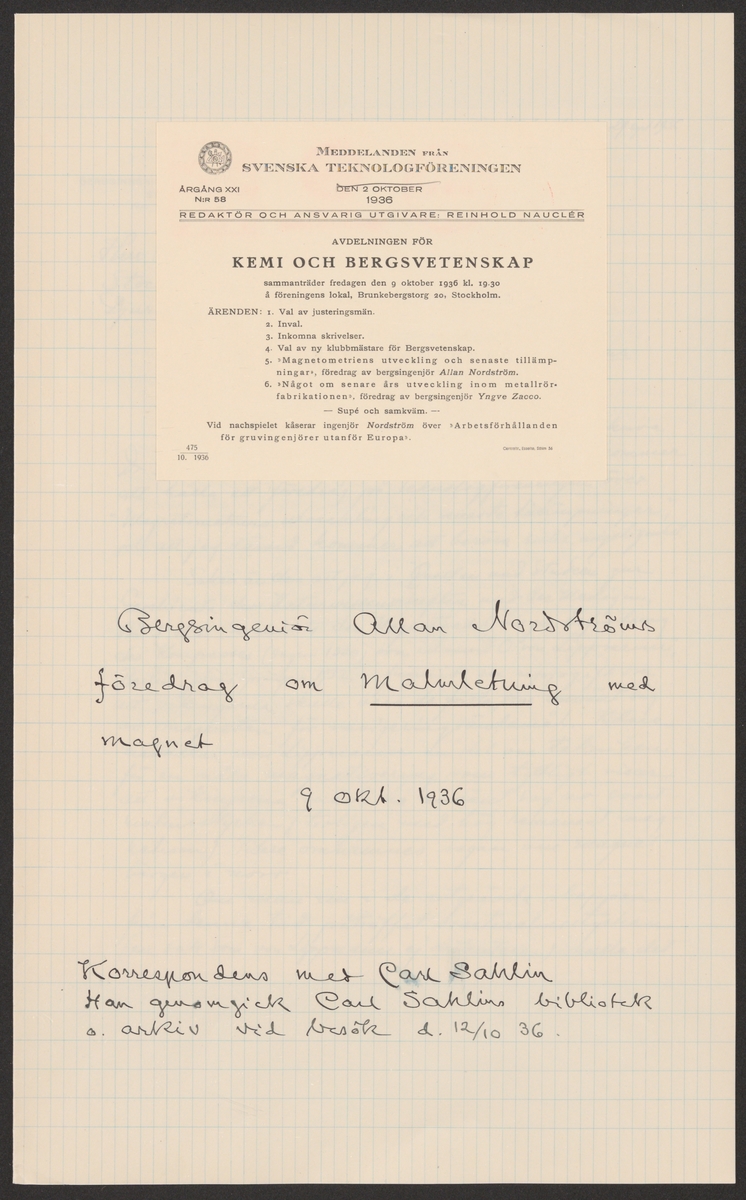 MEDDELANDEN FRÅN
SVENSKA TEKNOLOGFÖRENINGEN
ÅRGÅNG XXI
N:R 58
DEN 2 OKTOBER
1936
REDAKTÖR OCH ANSVARIG UTGIVARE: REINHOLD NAUCLÉR
AVDELNINGEN FÖR
KEMI OCH BERGSVETENSKAP
sammanträder fredagen den 9 oktober 1936 kl. 19.30
å föreningens lokal, Brunkebergstorg 20, Stockholm.
ÄRENDEN: 1. Val av justeringsmän.
2. Inval.
3. Inkomna skrivelser.
4. Val av ny klubbmästare för Bergsvetenskap.
5. »Magnetometriens utveckling och senaste tillämp-
ningar», föredrag av bergsingenjör Allan Nordström.
6. »Något om senare års utveckling inom metallrör-
fabrikationen», föredrag av bergsingenjör Yngve Zacco.
— Supé och samkväm. —
Vid nachspielet kåserar ingenjör Nordström över »Arbetsförhållanden
för gruvingenjörer utanför Europa».
475
10. 1936
Bergsingeniör Allan Nordströms
föredrag om Malmletning med
magnet
9 okt. 1936
Korrespondens med Carl Sahlin
Han genomgick Carl Sahlins bibliotek
o. arkiv vid besök d. 12/10 36.